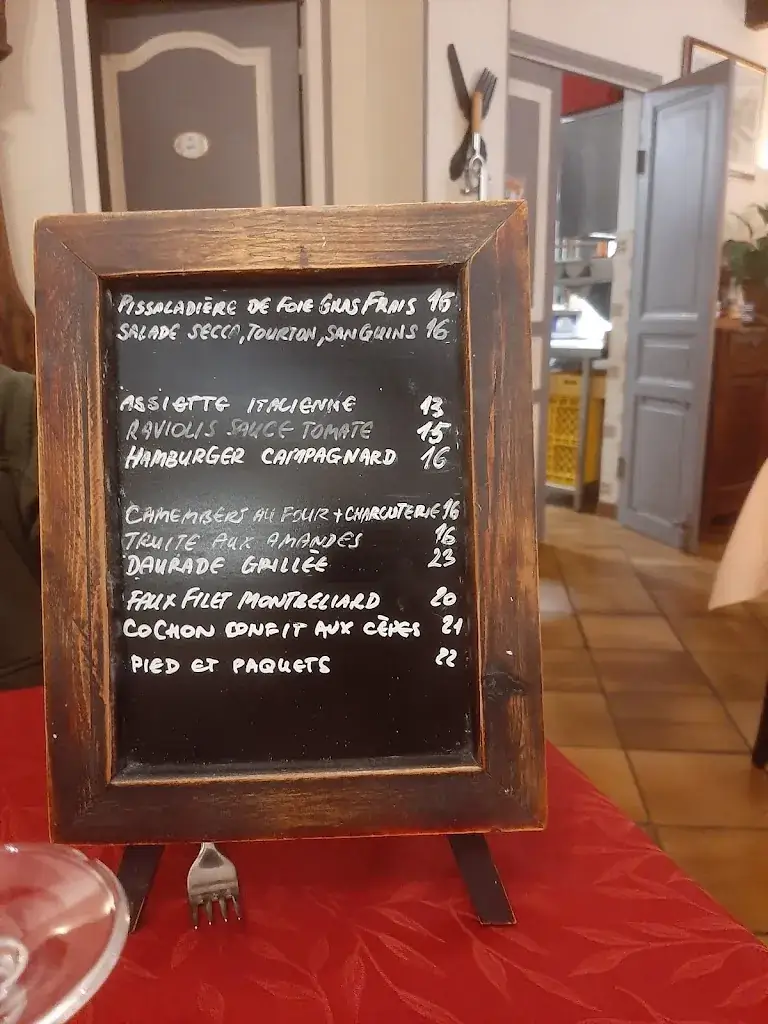 PISSALADIÈRE DE FOIE GRAS FRAIS 16
SALADE SECCA, TOURTON, SANGUINS 16
ASSIETTE ITALIENNE 13
RAVIOLIS SAUCE TOMATE 15
HAMBURGER CAMPAGNARD 16
CAMEMBERS AU FOUR + CHARCUTERIE 16
TRUITE AUX AMANDES 16
DAURADE GRILLÉE 23
FAUX FILET MONTBELIARD 20
COCHON CONFIT AUX CÈPES 21
PIED ET PAQUETS 22